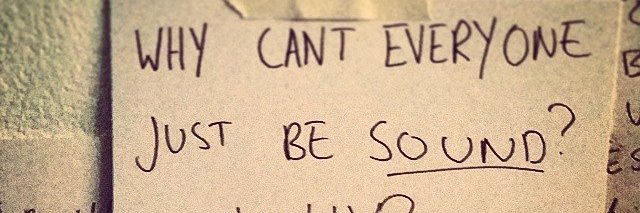 WHY CANT EVERYONE
JUST BE SOUND?